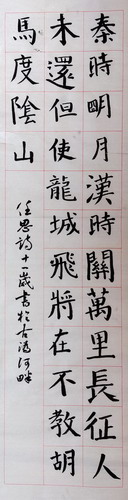 秦時明月漢時關萬里長征人
未還但使龍城飛將在不教胡
馬度陰山
任思詩十一歲書於古滘河畔